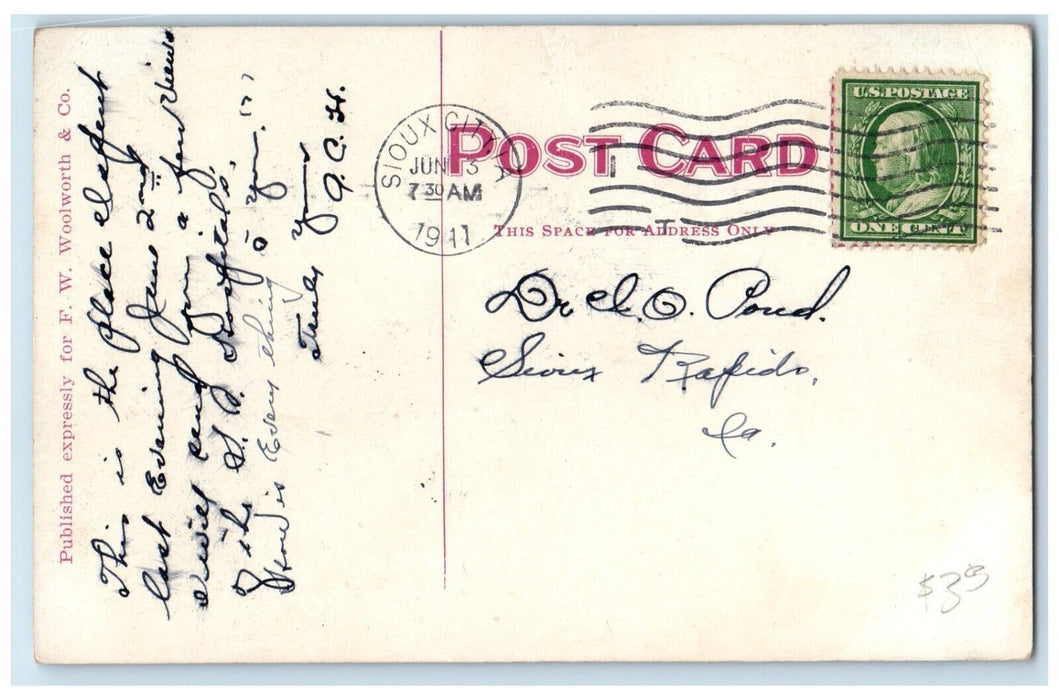 Published expressly for F. W. Woolworth & Co.
This is the place I spent
last Evening June 2nd
I will send you a few views
of the S. F. Hospitals.
How is Every thing to you. ??
Truly yours
J. C. H.
SIOUX CITY, IA
JUN 3
7 30 AM
1911
POST CARD
THIS SPACE FOR ADDRESS ONLY
U.S. POSTAGE
ONE CENT
Dr. I. O. Pond.
Sioux Rapids,
Ia.
$3.95